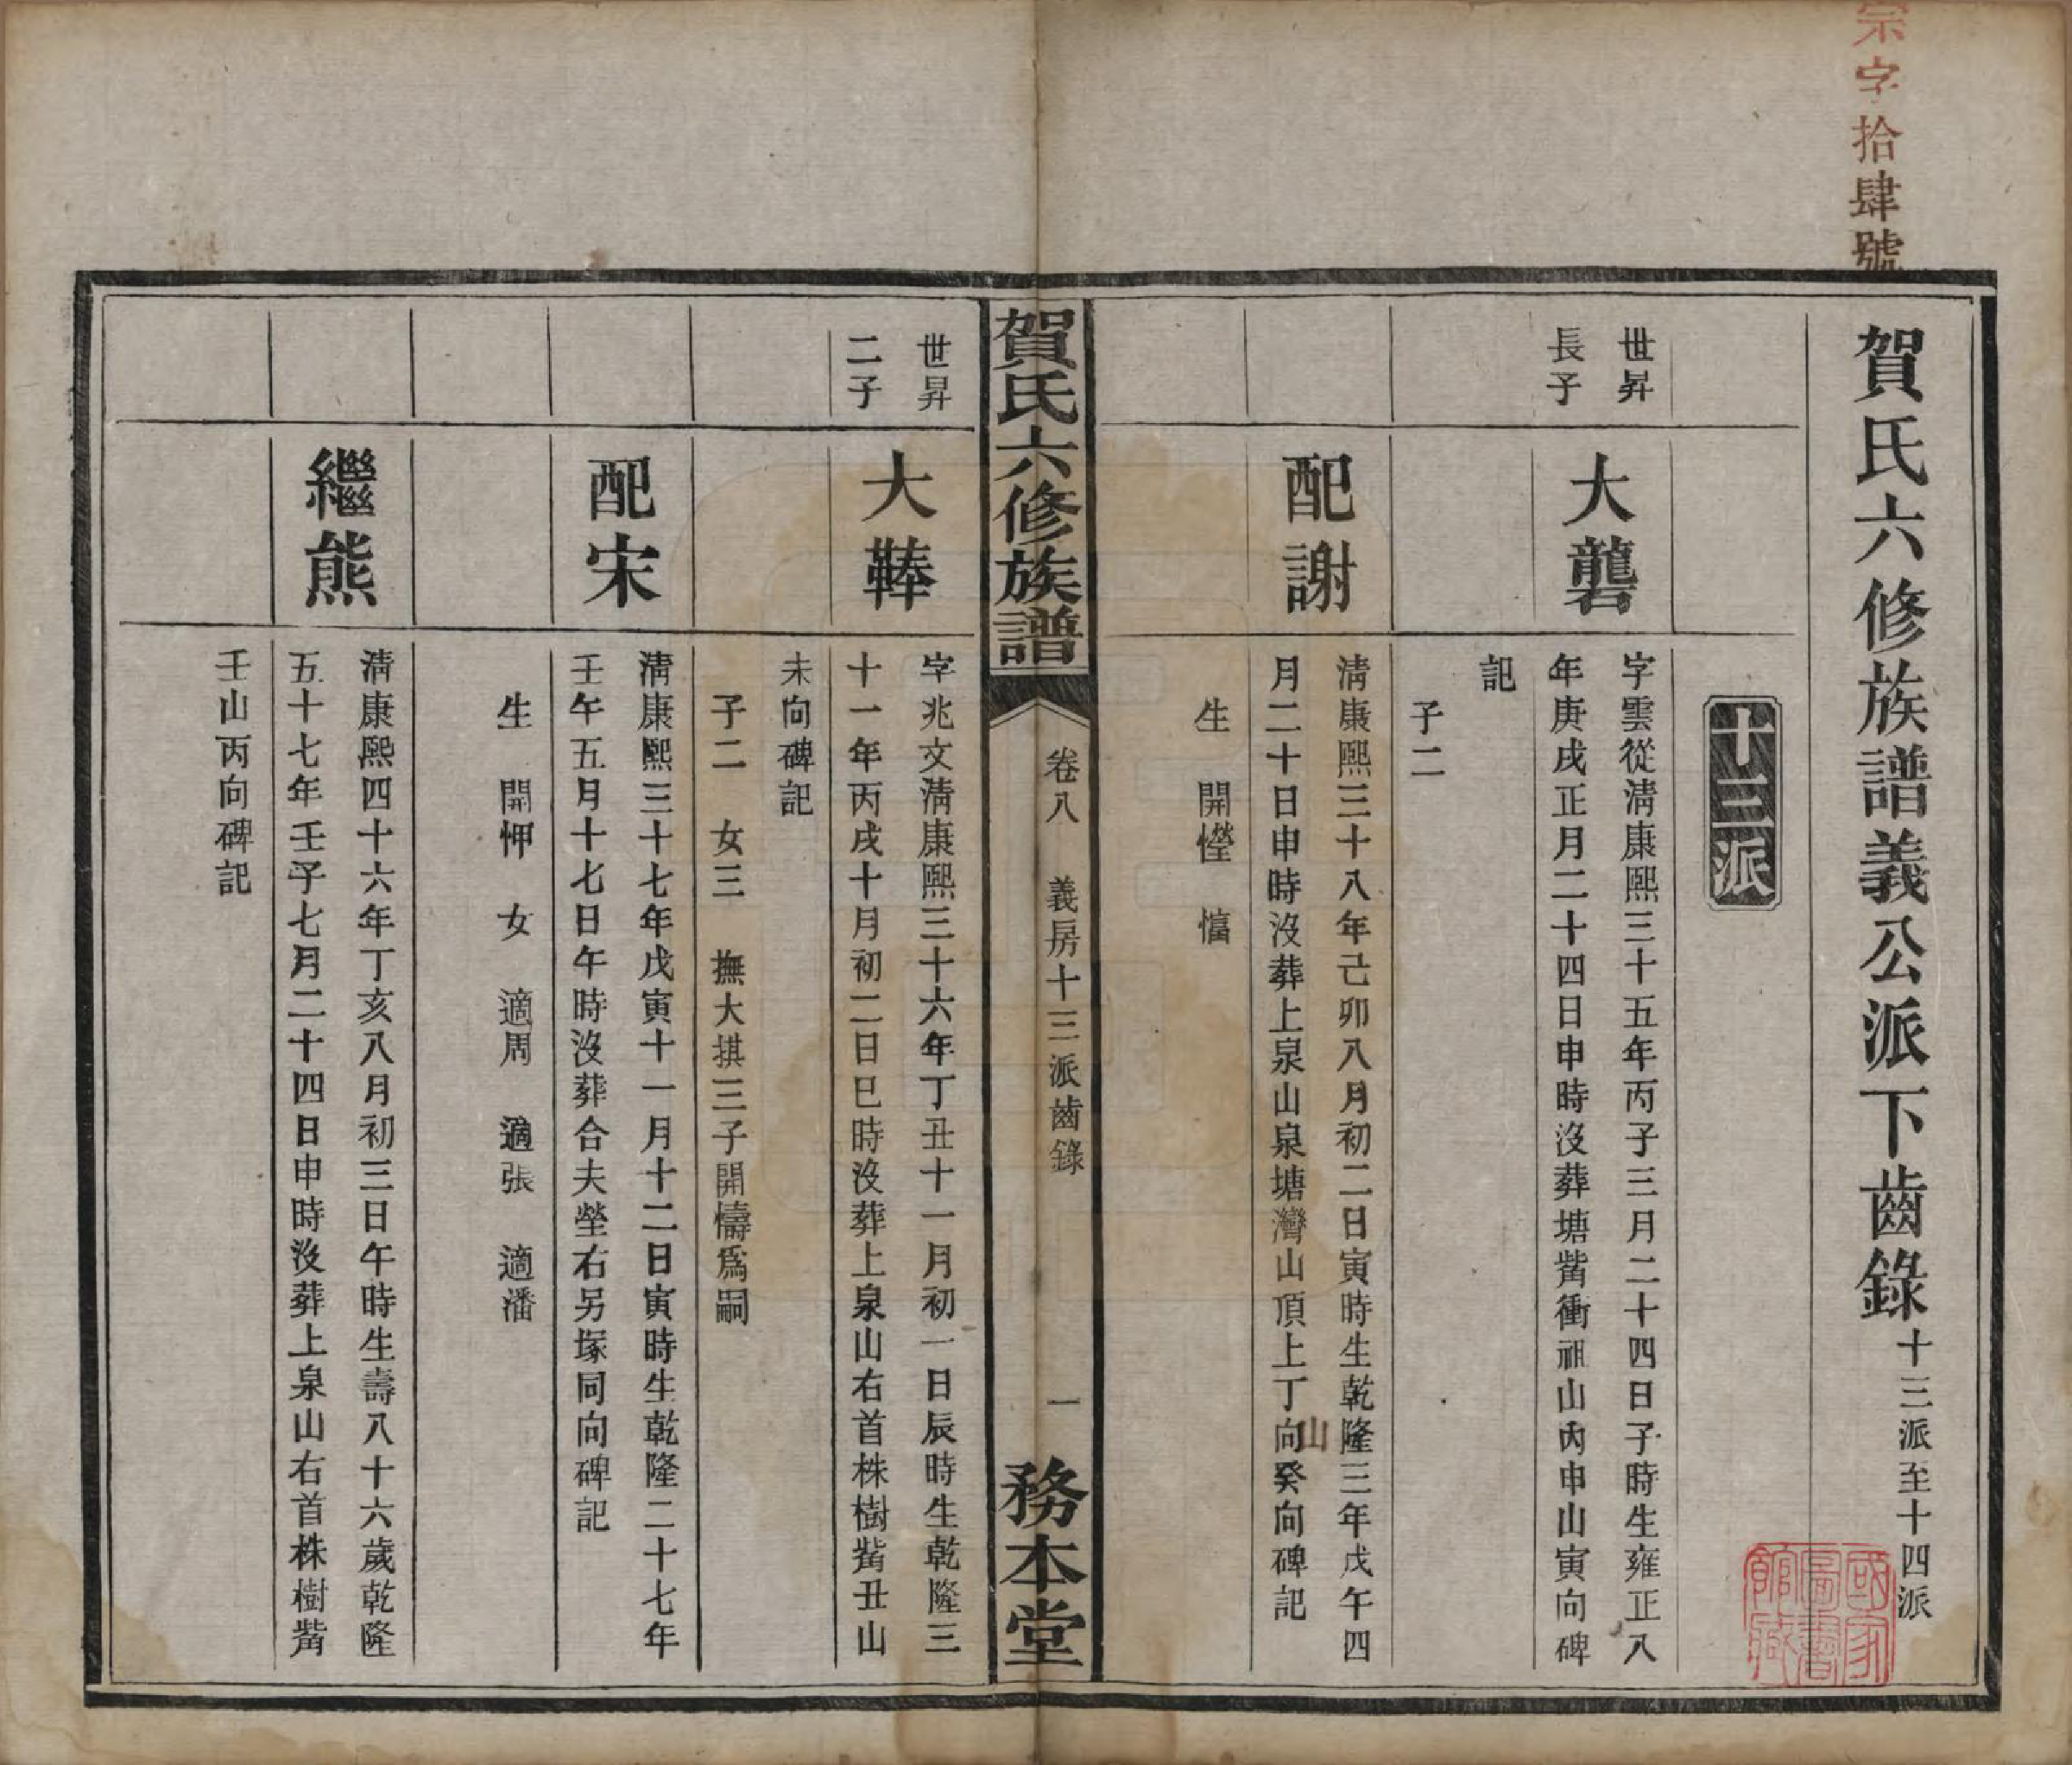 宗字拾肆號
賀氏六修族譜義公派下齒錄十三派至十四派
十三派
世昇
長子
大礱
字雲從淸康熙三十五年丙子三月二十四日子時生雍正八
年庚戌正月二十四日申時沒葬塘觜衝祖山內申山寅向碑
記
子二
配謝
淸康熙三十八年己卯八月初二日寅時生乾隆三年戊午四
月二十日申時沒葬上泉山泉塘灣山頂上丁向癸向碑記
山
生 開慳 慉
賀氏六修族譜
卷八 義房十三派齒錄
一
務本堂
世昇
二子
大鞤
字兆文淸康熙三十六年丁丑十一月初一日辰時生乾隆三
十一年丙戌十月初二日巳時沒葬上泉山右首株樹觜丑山
未向碑記
子二 女三 撫大摸三子開懤爲嗣
配宋
淸康熙三十七年戊寅十一月十二日寅時生乾隆二十七年
壬午五月十七日午時沒葬合夫塋右另塚同向碑記
生 開㤉 女 適周 適張 適潘
繼熊
淸康熙四十六年丁亥八月初三日午時生壽八十六歲乾隆
五十七年壬子七月二十四日申時沒葬上泉山右首株樹觜
壬山丙向碑記
國家圖書館藏